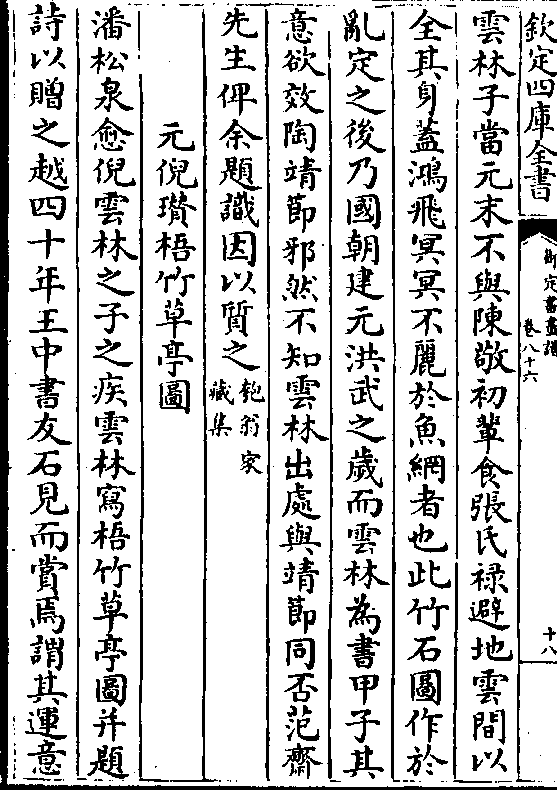 欽定四庫全書
御定書畫譜
卷八十六
十八
雲林子當元末不與陳敬初輩食張氏禄避地雲間以
全其身蓋鴻飛冥冥不麗於魚網者也此竹石圖作於
亂定之後乃國朝建元洪武之歲而雲林為書甲子其
意欲效陶靖節邪然不知雲林出處與靖節同否范齋
先生俾余題識因以質之
匏翁家
藏集
元倪瓚梧竹草亭圖
潘松泉愈倪雲林之子之疾雲林寫梧竹草亭圖并題
詩以贈之越四十年王中書友石見而賞焉謂其運意